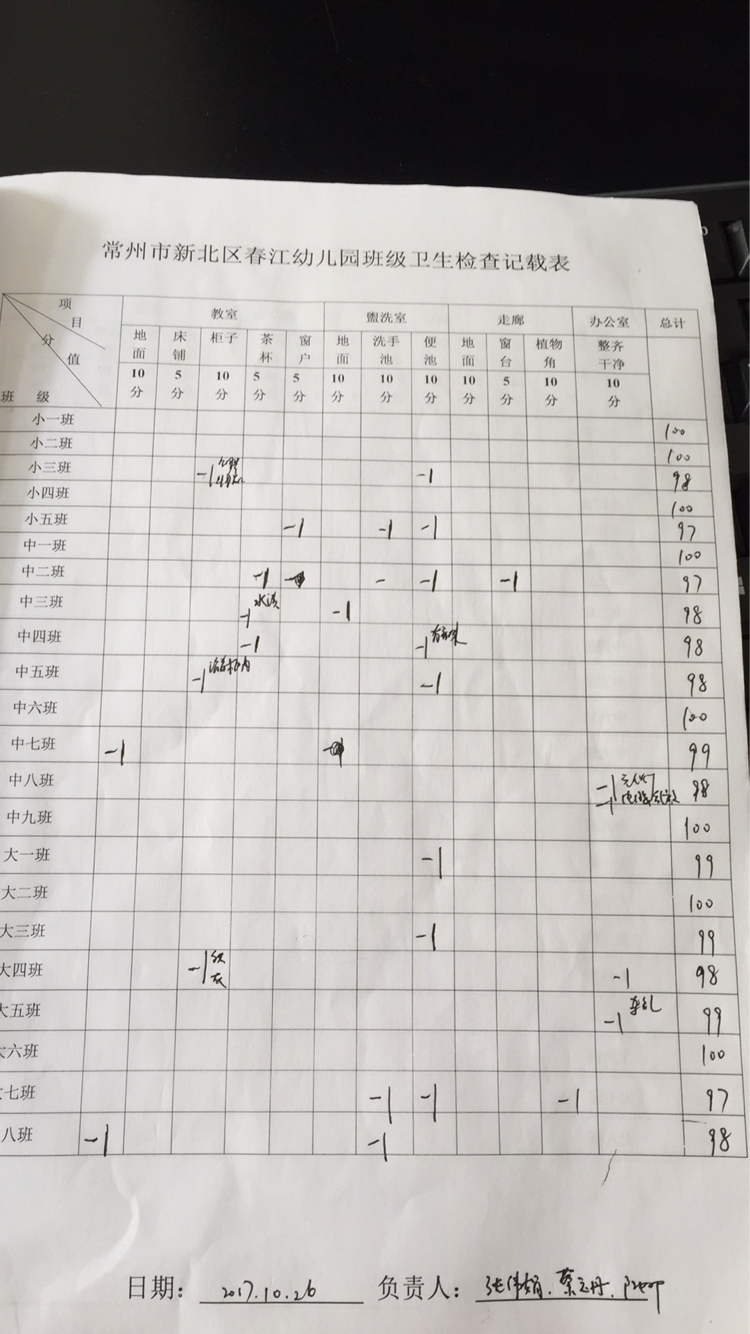 常州市新北区春江幼儿园班级卫生检查记载表
项目 教室 盥洗室 走廊 办公室 总计
分值 地面 床铺 柜子 茶杯 窗户 地面 洗手池 便池 地面 窗台 植物角 整齐干净
班级 10分 5分 10分 5分 5分 10分 10分 10分 10分 5分 10分 10分
小一班 100
小二班 100
小三班 -1 -1 98
小四班 100
小五班 -1 -1 -1 97
中一班 100
中二班 -1 - -1 -1 97
中三班 -1 水渍 -1 98
中四班 -1 -1 98
中五班 -1 -1 98
中六班 100
中七班 -1 99
中八班 -1 -1 98
中九班 100
大一班 -1 99
大二班 100
大三班 -1 99
大四班 -1 灰 -1 98
大五班 -1 杂乱 99
大六班 100
七班 -1 -1 -1 97
八班 -1 -1 98
日期: 2017.10.26 负责人: 张伟娟.蔡立丹.